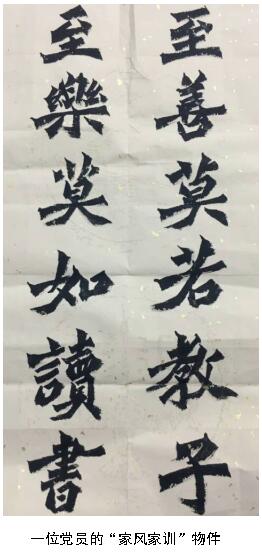 至善莫若教子
至樂莫如讀書
一位党员的“家风家训”物件